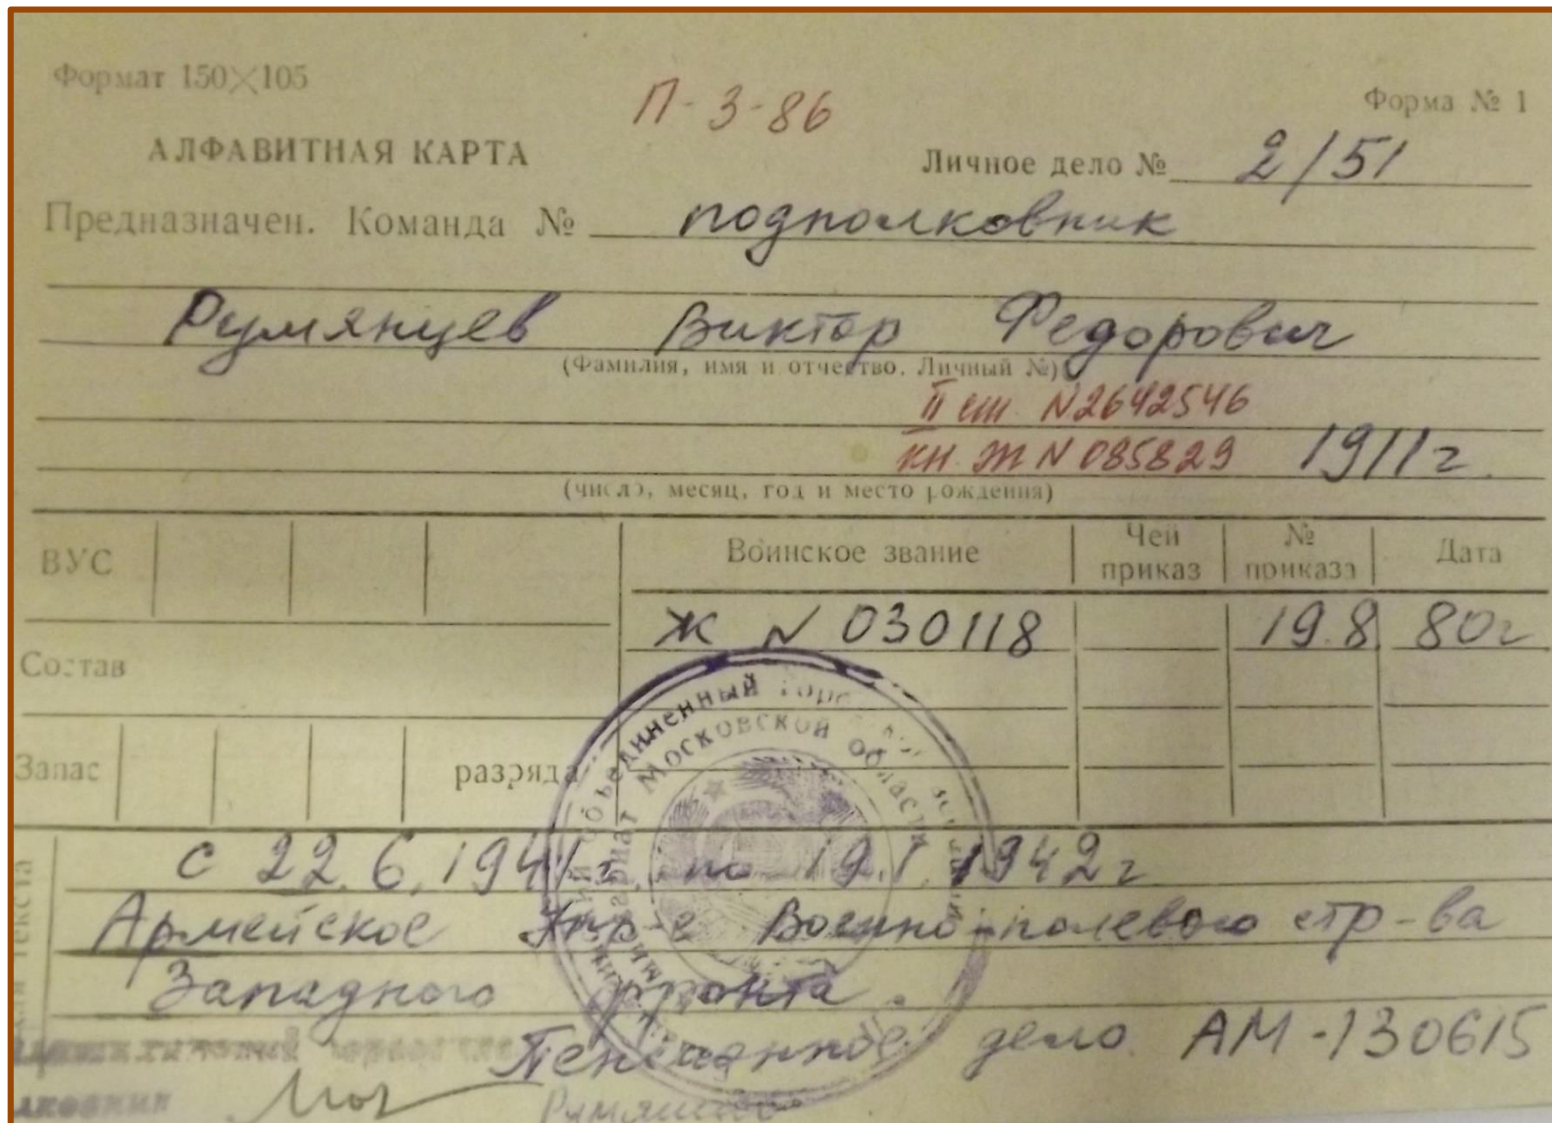 Формат 150×105
П-3-86
Форма № 1
АЛФАВИТНАЯ КАРТА
Личное дело № 2/51
Предназначен. Команда № подполковник
Румянцев Виктор Федорович
(Фамилия, имя и отчество. Личный №)
II ст. N2642546
кн. Ж N 085829 1911г.
(число, месяц, год и место рождения)
ВУС
Воинское звание
Чей приказ
№ приказа
Дата
Ж N 030118 19.8 80г
Состав
Запас
разряда
объединенный
Московской области
с 22.6.1941г. по 19.1.1942г
Армейское Упр-е Военно-полевого стр-ва
Западного фронта.
Пенсионное дело АМ-130615